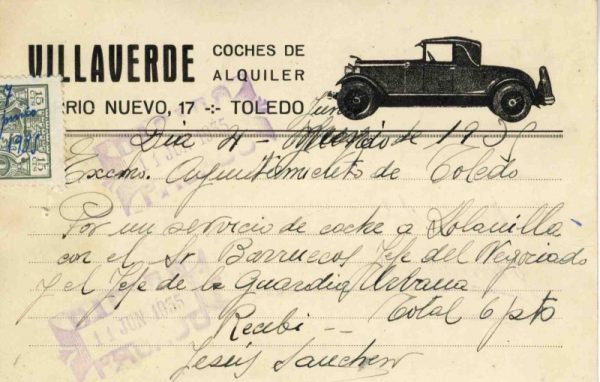 VILLAVERDE COCHES DE ALQUILER
RRIO NUEVO, 17 -:- TOLEDO
15 CTS 15
1935
Junio
Dia 4 - de 1935
Excmo. Ayuntamiento de Toledo
Por un servicio de coche a Solanilla
con el Sr Barruecos Jefe del Negociado
y el Jefe de la Guardia Urbana
Total 6 pts
Recibi --
Jesús Sanchez
11 JUN 1935
PAGADO
11 JUN 1935
PAGADO